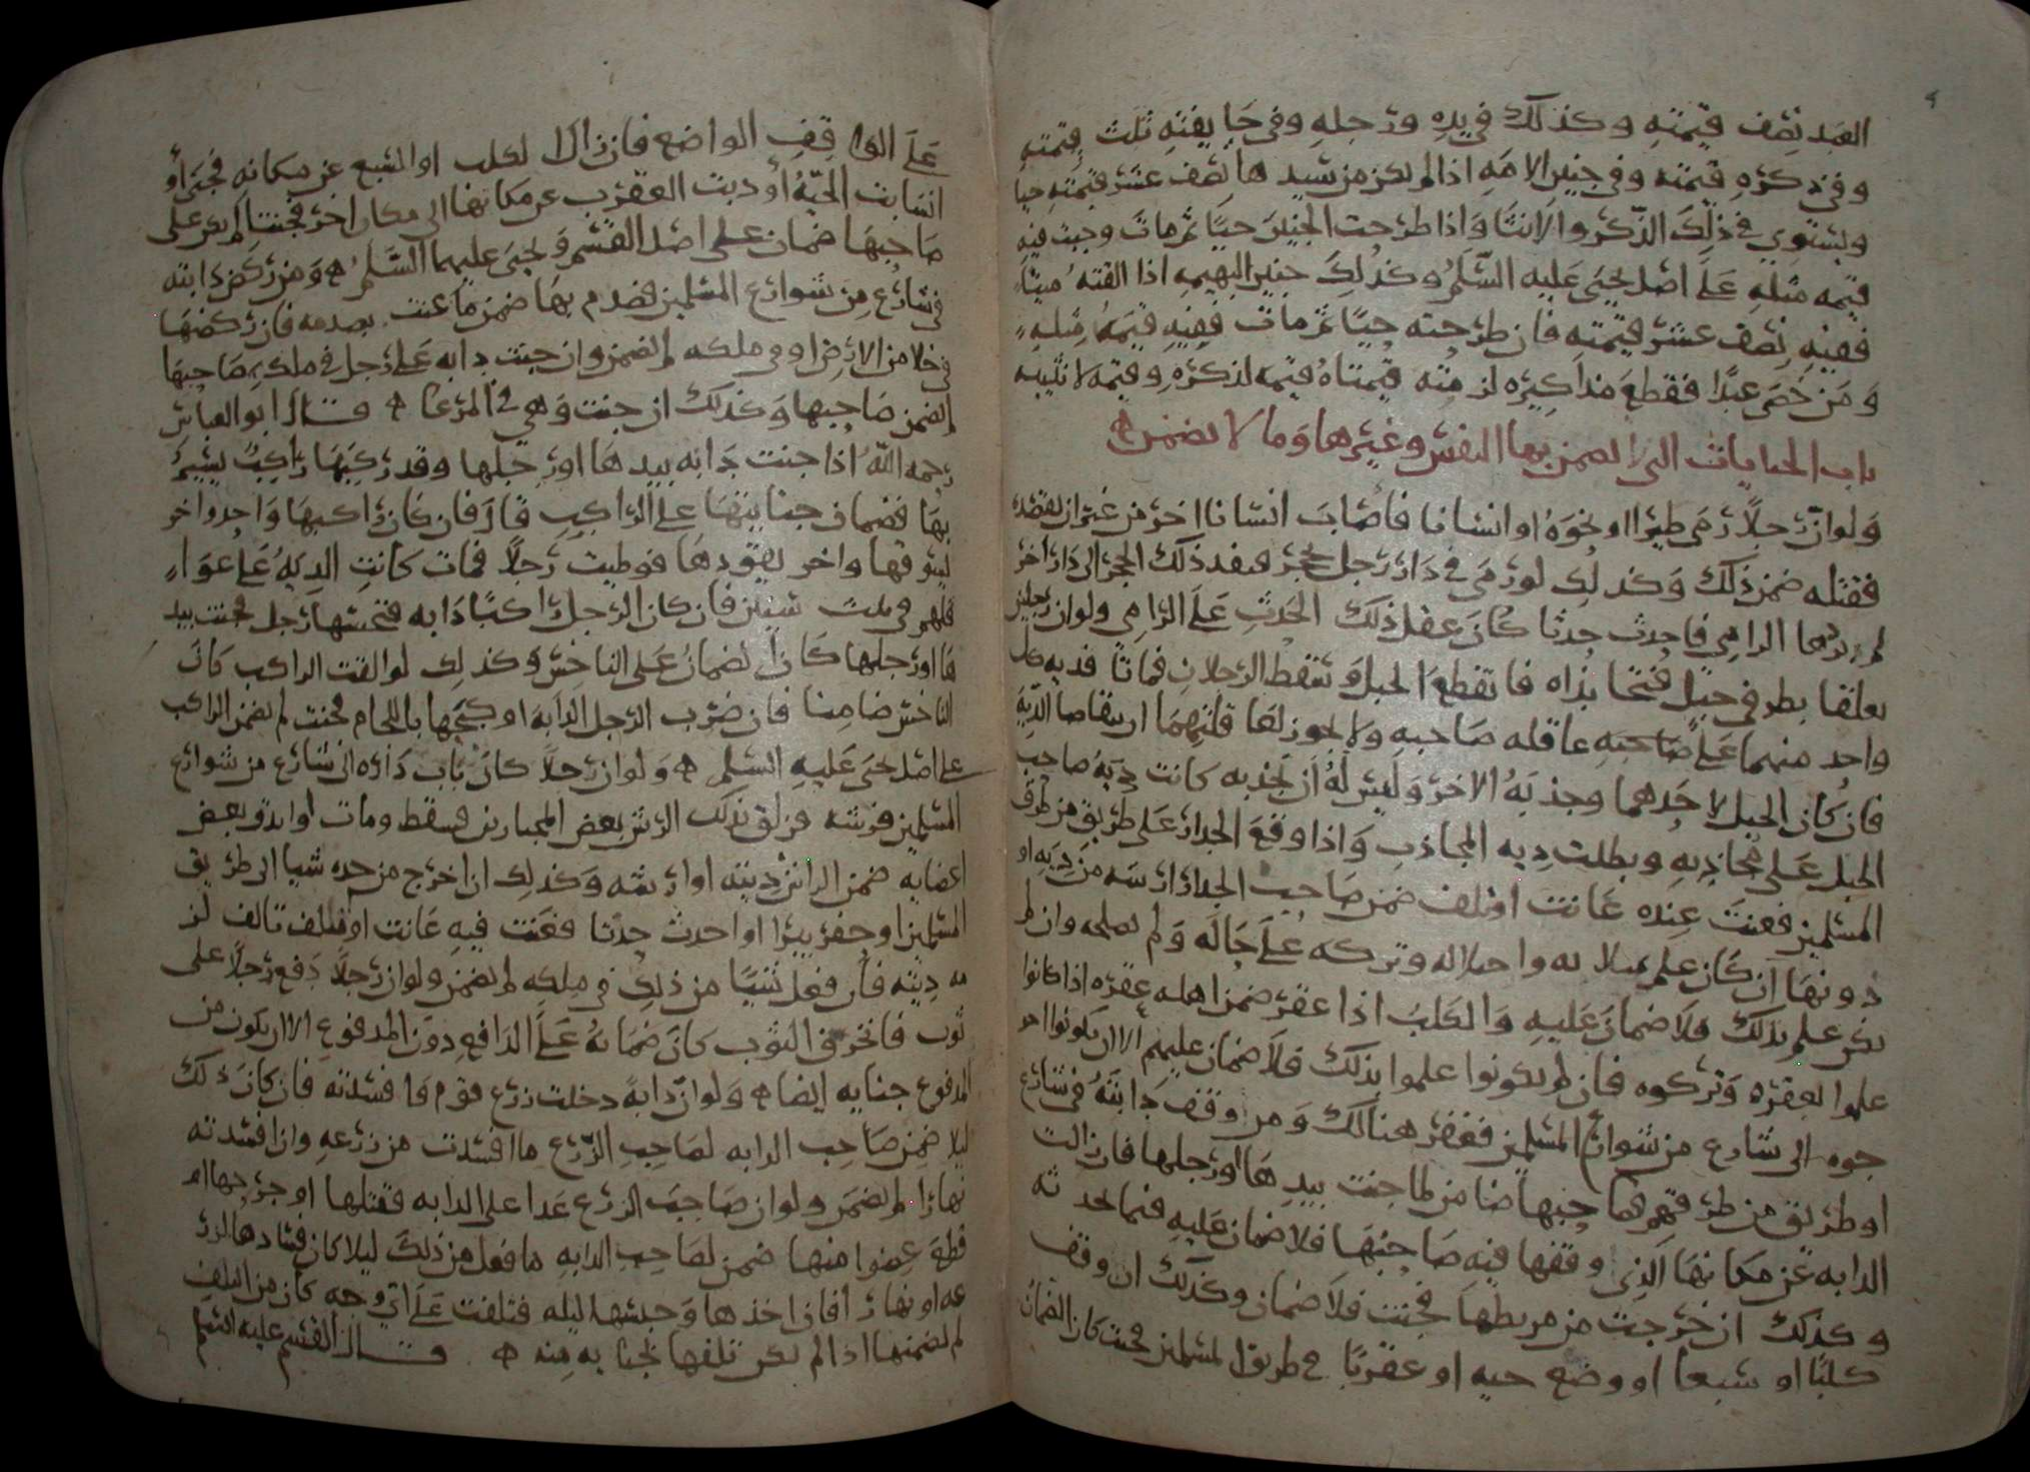 العبد نصف قيمته وكذلك في يده ورجله وفي جايفته ثلث قيمته
وفي ذكره قيمته وفي جنين الامه اذا لم يكن من سيدها نصف عشر قيمته حيا
ويستوي في ذلك الذكر والانثا واذا طرحت الجنين حيا ثم مات وجبت فيه
قيمه مثله على اصل يحيى عليه السلم وكذلك جنين البهيمه اذا القته ميتا
ففيه نصف عشر قيمته فان طرحته حيا ثم مات ففيه قيمه مثله
ومن خصى عبدا فقطع مذاكيره لزمته قيمتاه قيمه لذكره وقيمه لانثييه
باب الجنايات التي يضمن بها النفس وغيرها وما لا يضمن
ولو ان رجلا رمى طيرا او نحوه او انسانا فاصاب انسانا اخر من غير ان يقصده
فقتله ضمن ذلك وكذلك لو رمى في دار رجل بحجر فنفد ذلك الحجر الى دار اخر
لم يردها الرامي فاحدث حدثا كان عقل ذلك الحدث على الرامي ولو ان رجلين
تعلقا بطرفي حبل فتجاذباه فانقطع الحبل وسقط الرجلان فماتا فديه كل
واحد منهما على صاحبه عاقله صاحبه ولا يجوز لعاقلتهما ان يتقاصا الديه
فان كان الحبل لاحدهما وجذبه الاخر وليس له ان يجذبه كانت ديه صاحب
الحبل على مجاذبه وبطلت ديه المجاذب واذا وقع الجدار على طريق من طرق
المسلمين فعنت عنده عانت او تلف ضمن صاحب الجدار ارشه من ديه او
دونها ان كان علم بميلانه واختلاله وتركه على حاله ولم يصلحه وان لم
يكن علم بذلك فلا ضمان عليه والكلب اذا عقر ضمن اهله عقره اذا كانوا
علموا بعقره وتركوه فان لم يكونوا علموا بذلك فلا ضمان عليهم الا ان يكونوا اخر
جوه الى شارع من شوارع المسلمين فعقر هنالك ومن اوقف دابته في شارع
او طريق من طرقهم فصاحبها ضامن لما جنت بيدها او رجلها فان زالت
الدابه عن مكانها الذي وقفها فيه صاحبها فلا ضمان عليه فيما تحدثه
وكذلك ان خرجت من مربطها فجنت فلا ضمان وكذلك ان وقف
كلبا او سبعا او وضع حيه او عقربا في طريق المسلمين فجنت كان الضمان
على الواقف الواضع فان زال الكلب او السبع عن مكانه فجنى او
انسابت الحيه او دبت العقرب عن مكانها الى مكان اخر فجنتا لم يكن على
صاحبها ضمان على اصل القسم ويحيى عليهما السلم ومن ركض دابته
في شارع من شوارع المسلمين فصدم بها ضمن ما عنت بصدمه فان ركضها
في خلا من الارض او في ملكه لم يضمن وان جنت دابه على رجل في ملك صاحبها
لم يضمن صاحبها وكذلك ان جنت وهي في المرعا قال ابو العباس
رحمه الله اذا جنت دابه بيدها او رجلها وقد ركبها راكب يسير
بها فضمان جنايتها على الراكب قال فان كان راكبها واحد واخر
يسوقها واخر يقودها فوطيت رجلا فمات كانت الديه على عوا
قلهم في ثلث سنين فان كان الرجل راكبا دابه فنخسها رجل فجنت بيد
ها او رجلها كان الضمان على الناخس وكذلك لو القت الراكب كان
الناخس ضامنا فان ضرب الرجل الدابه او كبحها باللجام فجنت لم يضمن الراكب
على اصل يحيى عليه السلم ولو ان رجلا كان باب داره الى شارع من شوارع
المسلمين فرشه فزلق بذلك الرش بعض المجتازين فسقط ومات او اندق بعض
اعضايه ضمن الراش ديته او ارشه وكذلك ان اخرج من حده شيا الى طريق
المسلمين او حفر بيرا او احدث حدثا فعنت فيه عانت او تلف تالف لز
مه ديته فان فعل شيا من ذلك في ملكه لم يضمن ولو ان رجلا دفع رجلا على
ثوب فانخرق الثوب كان ضمانه على الدافع دون المدفوع الا ان يكون من
المدفوع جنايه ايضا ولو ان دابه دخلت زرع قوم فافسدته فان كان ذلك
ليلا ضمن صاحب الدابه لصاحب الزرع ما افسدت من زرعه وان افسدته
نهارا لم يضمن ولو ان صاحب الزرع عدا على الدابه فقتلها او جرحها او
قطع عضوا منها ضمن لصاحب الدابه ما فعل من ذلك ليلا كان فسادها لزر
عه او نهارا فان اخذها وحبسها ليله فتلفت على اي وجه كان من التلف
لم يضمنها اذا لم يكن تلفها بجنايه منه قال القسم عليه السلم